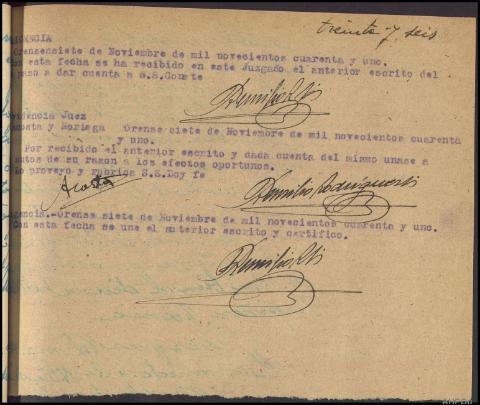 treinta y seis
IGENCIA
Orensesiete de Noviembre de mil novecientos cuarenta y uno.
Con esta fecha se ha recibido en este Juzgado el anterior escrito del
paso a dar cuenta a S.S. Conste
videncia Juez
Acosta y Noriega Orense siete de Noviembre de mil novecientos cuarenta
y uno.
Por recibido el anterior escrito y dada cuenta del mismo unase a
autos de su razon a los efectos oportunos.
Lo proveyo y rubrica S.S. Doy fe
Acosta
igencia.-Orense siete de Noviembre de mil novecientos cuarenta y uno.
Con esta fecha se une el anterior escrito y certifico.